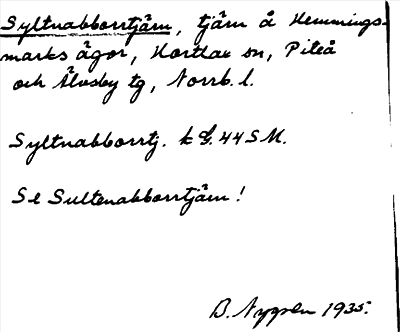 Syltnabborrtjärn, tjärn å Hemmings-
marks ägor, Hortlax sn, Piteå
och Älvsby tg, Norrb. l.
Syltnabborrtj. k G. 44 S M.
Se Sultenabborrtjärn!
B. Nygren 1935.